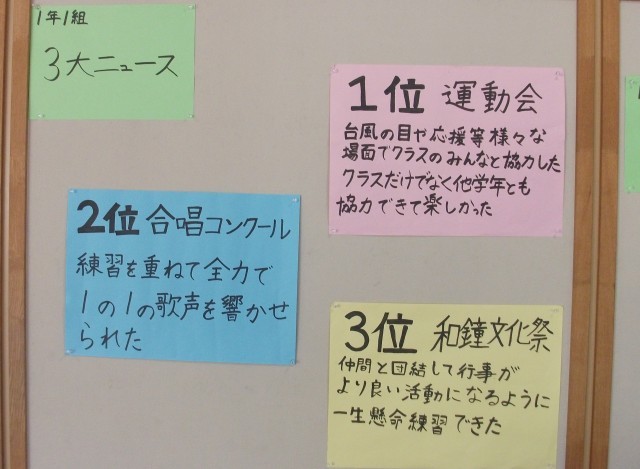 1年1組
3大ニュース
1位 運動会
台風の目や応援等様々な
場面でクラスのみんなと協力した
クラスだけでなく他学年とも
協力できて楽しかった
2位 合唱コンクール
練習を重ねて全力で
1の1の歌声を響かせ
られた
3位 和鐘文化祭
仲間と団結して行事が
より良い活動になるように
一生懸命練習できた